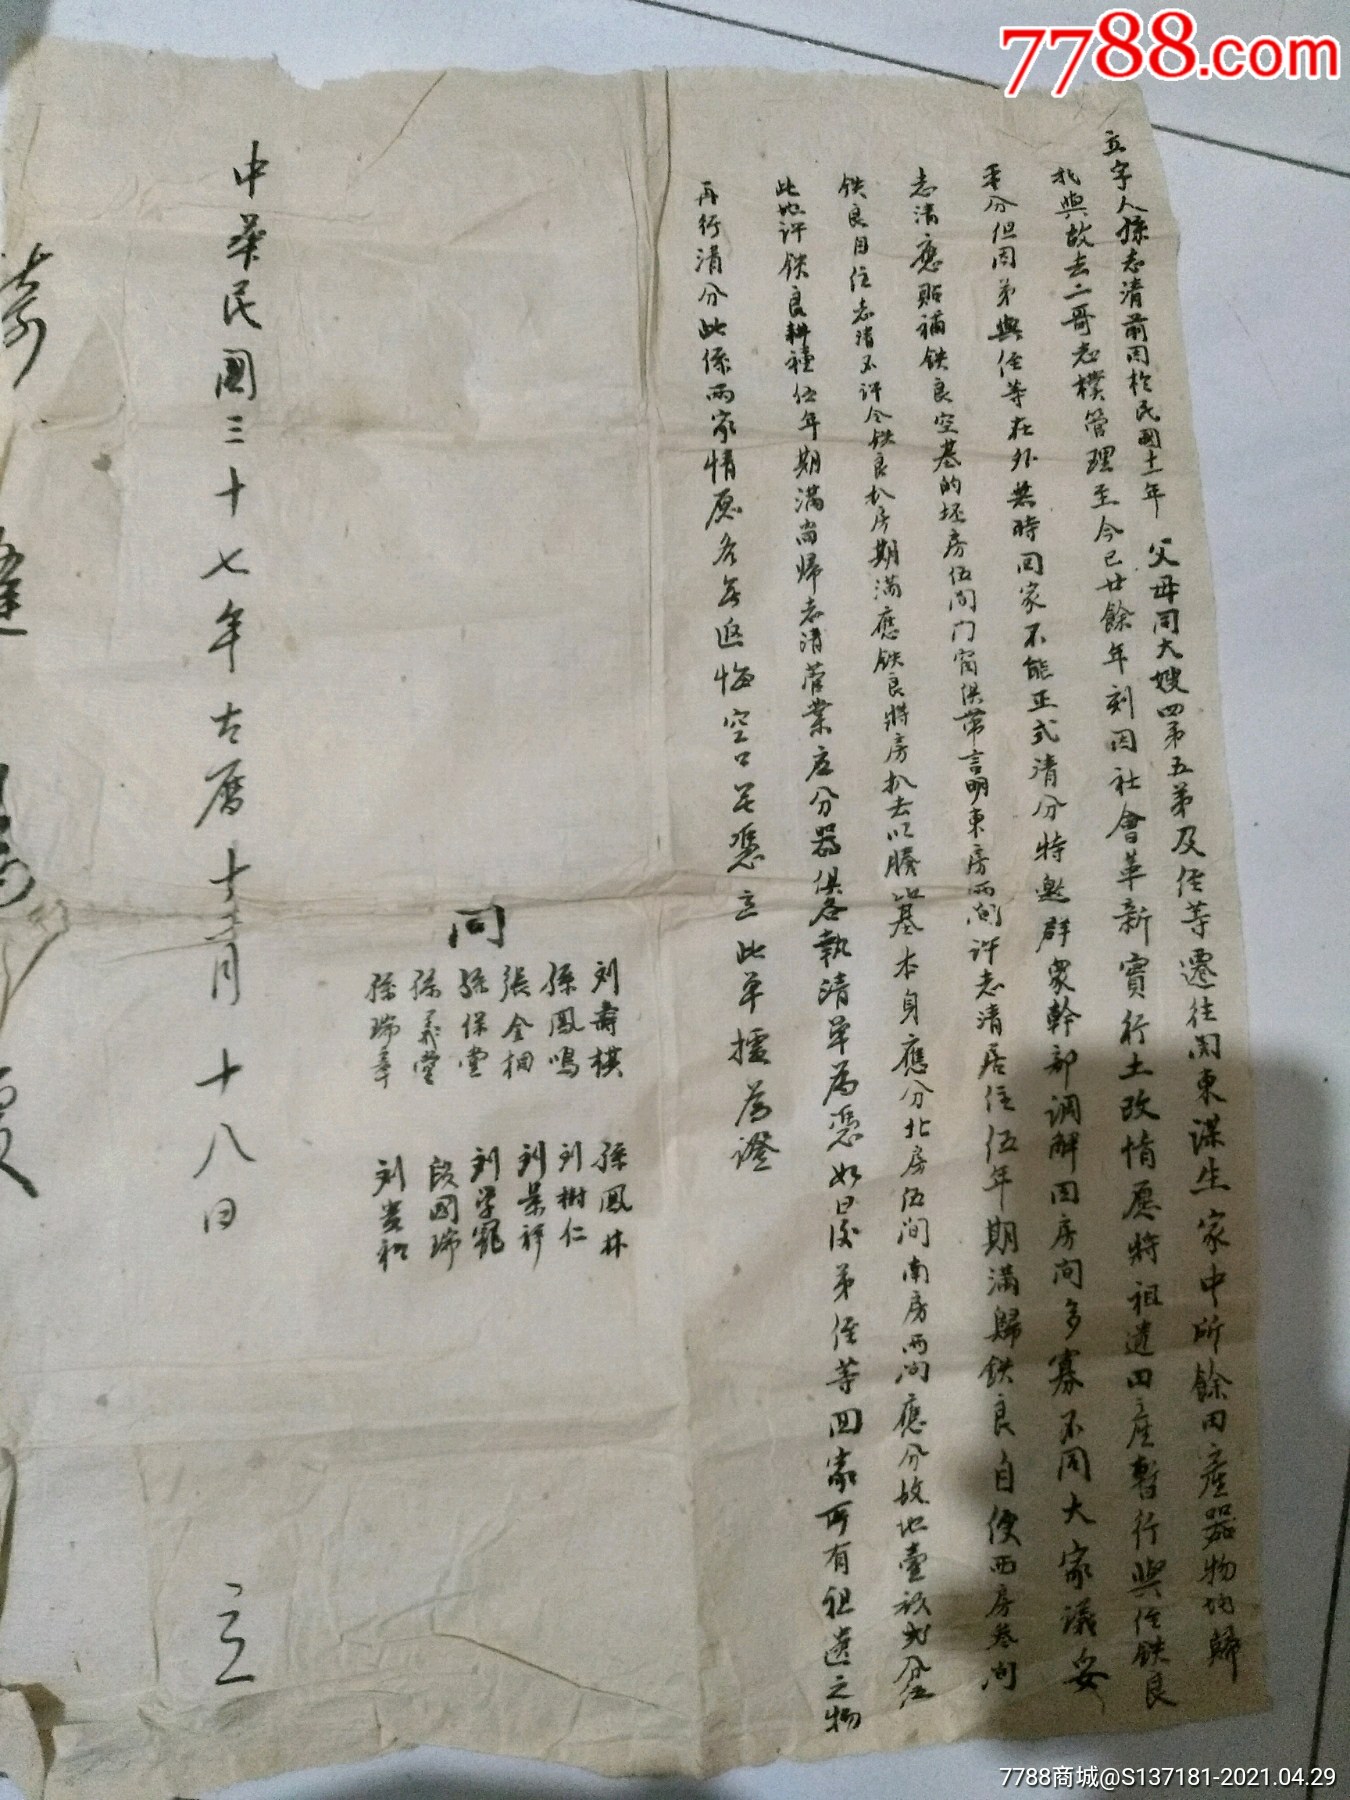 7788.com
立字人孫志清前因於民國十一年 父母同大嫂四弟五弟及侄等遷往関東謀生家中所餘田產器物均歸
我與故去二哥志樸管理至今已廿餘年刻因社會革新實行土改情愿將祖遺田產暫行與侄鉄良
平分但因弟與侄等在外無時回家不能正式清分特邀群眾幹部調解因房间多寡不同大家議妥
志清應貼補鉄良空基的坯房伍间门窗俱带言明東房兩间许志清居住伍年期滿歸鉄良自便西房叁间
鉄良自住志清不许令鉄良扒房期滿應鉄良將房扒去以騰此基本身應分北房伍间南房两间應分坟地壹段弍分伍
此地许鉄良耕種伍年期滿尚歸志清管業应分器俱各執清单為憑如日後弟侄等回家所有祖遺之物
再行清分此係两家情愿各無返悔空口無憑立此单擄為證
同
刘壽棋 孫鳳林
孫鳳鳴 刘樹仁
張金栶 刘景祥
孫保堂 刘学寵
孫義堂 段國瑞
孫瑞峯 刘貴和
中華民國三十七年古曆十二月十八日 立
7788商城@S137181-2021.04.29